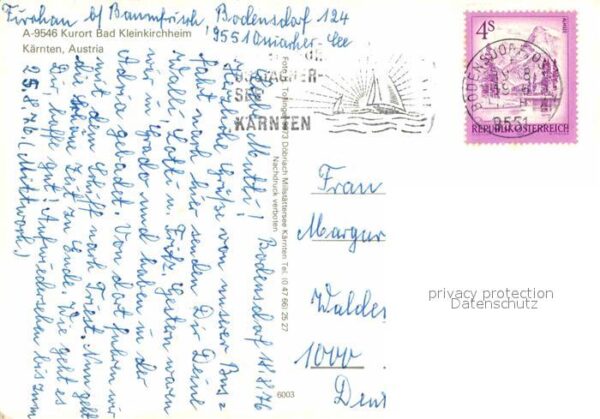 bei Baumfrisch, Bodensdorf 124
9551 Ossiacher-See
A-9546 Kurort Bad Kleinkirchheim
Kärnten, Austria
Bodensdorf 18.8.76
Liebe Mutti!
herzliche Grüße von unserer Bus=
fahrt nach hier senden Dir Deine
Walli, Lotti u. Fritz. Gestern waren
wir in Grado und haben in der
Adria gebadet. Von dort fuhren wir
mit dem Schiff nach Triest. Nun geht
die schöne Zeit zu Ende. Wie geht es
Dir, hoffe gut! Aufwiedersehen bis zum
25.8.76 (Mittwoch)
Döbriach Millstättersee Kärnten Tel. (0 47 66) 25 27
Nachdruck verboten
6003
SEE
KÄRNTEN
4S
REPUBLIK ÖSTERREICH
BODENSDORF
9551
Frau
Margar
Waldes
1000
privacy protection
Datenschutz